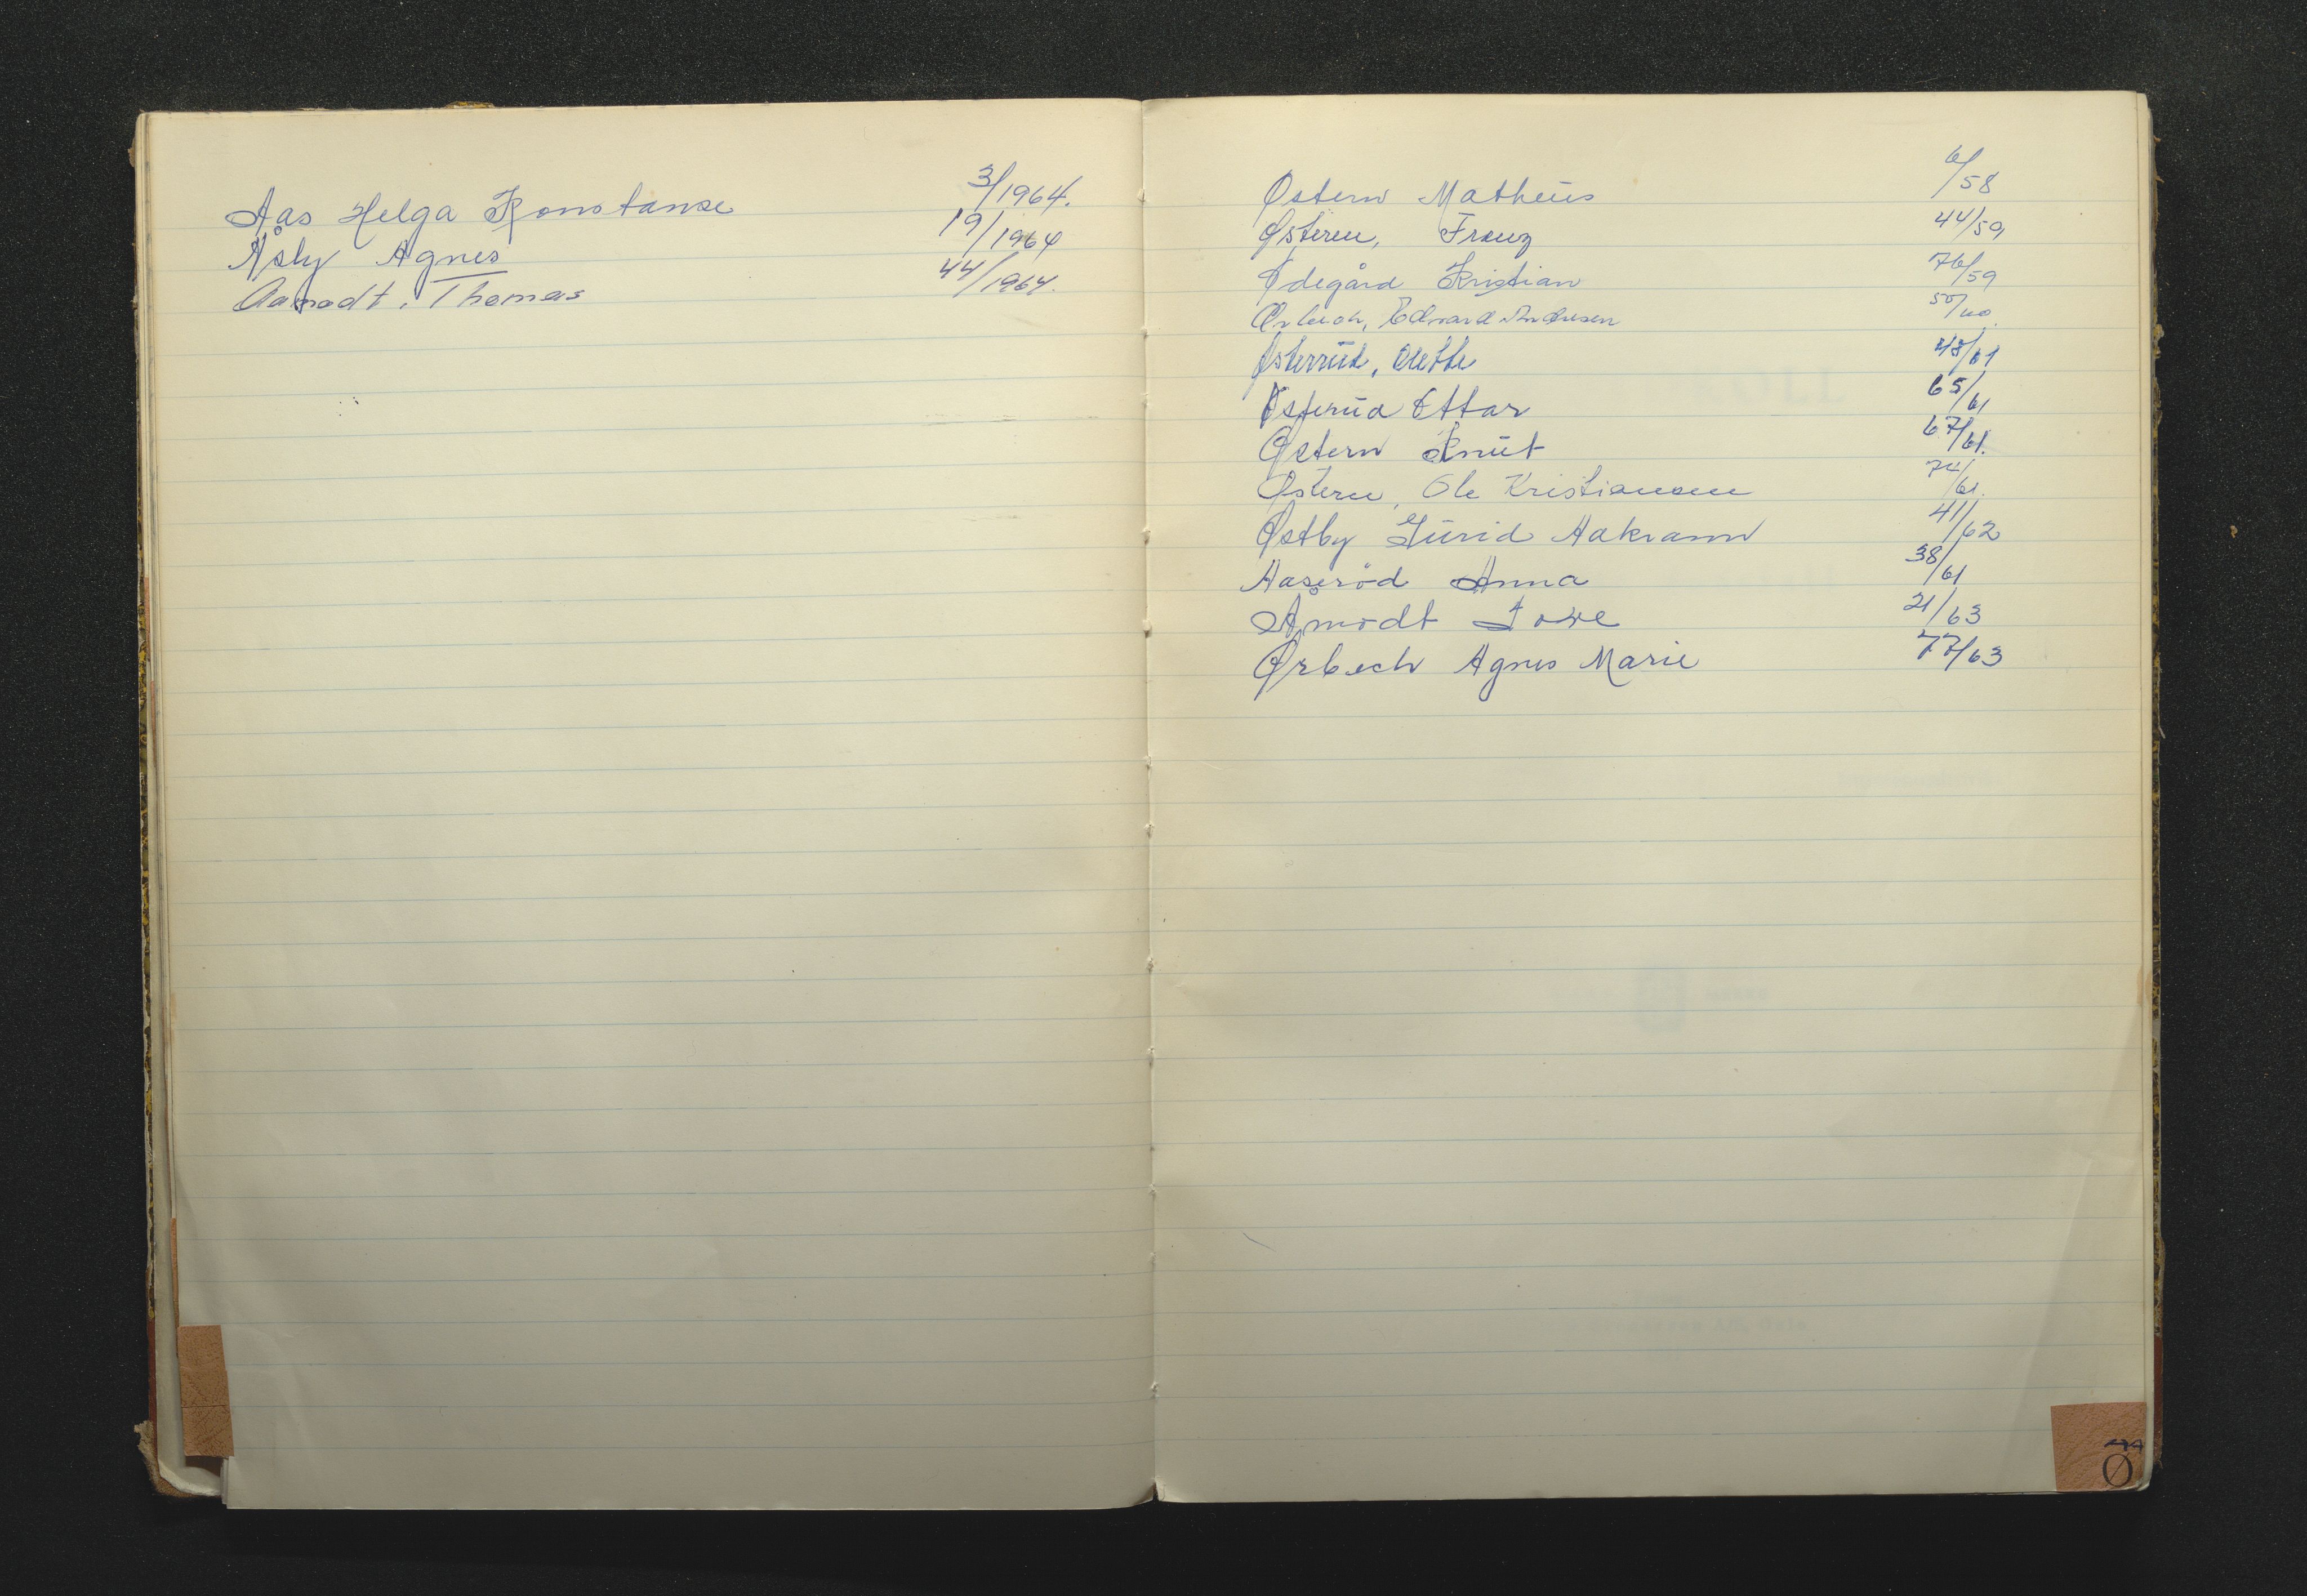 Aas Helga Konstanse 3/1964.
Åsly Agnes 19/1964
Aamodt, Thomas 44/1964.
Østern Matheus 6/58
Østeren, Franz 44/59
Ødegård Kristian 76/59
Ørbech, Edvard Andresen 50/60
Østerrud, Olette 48/61
Østerud Ottar 65/61
Østern Knut 67/61.
Østeren, Ole Kristiansen 74/61.
Østby Gurid Aakrann 41/62
Aaseröd Anna 38/61
Åmodt Tove 21/63
Ørbech Agnes Marie 77/63
Ø